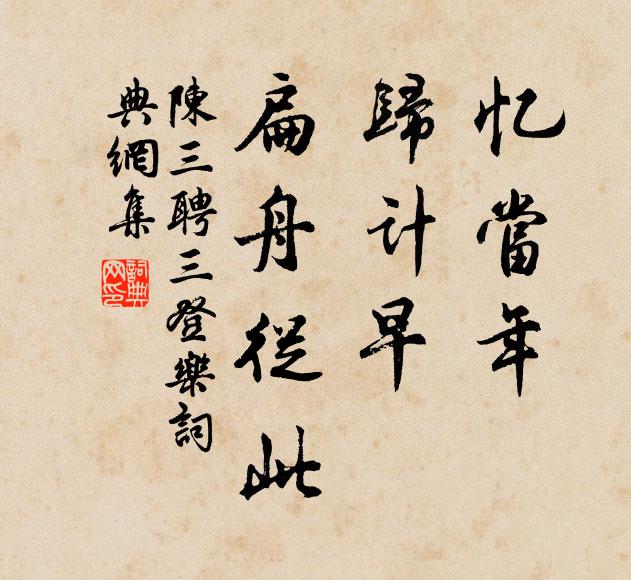 忆當年
歸计早
扁舟從此
陳三聘三登樂詞
典網集
詞典網印